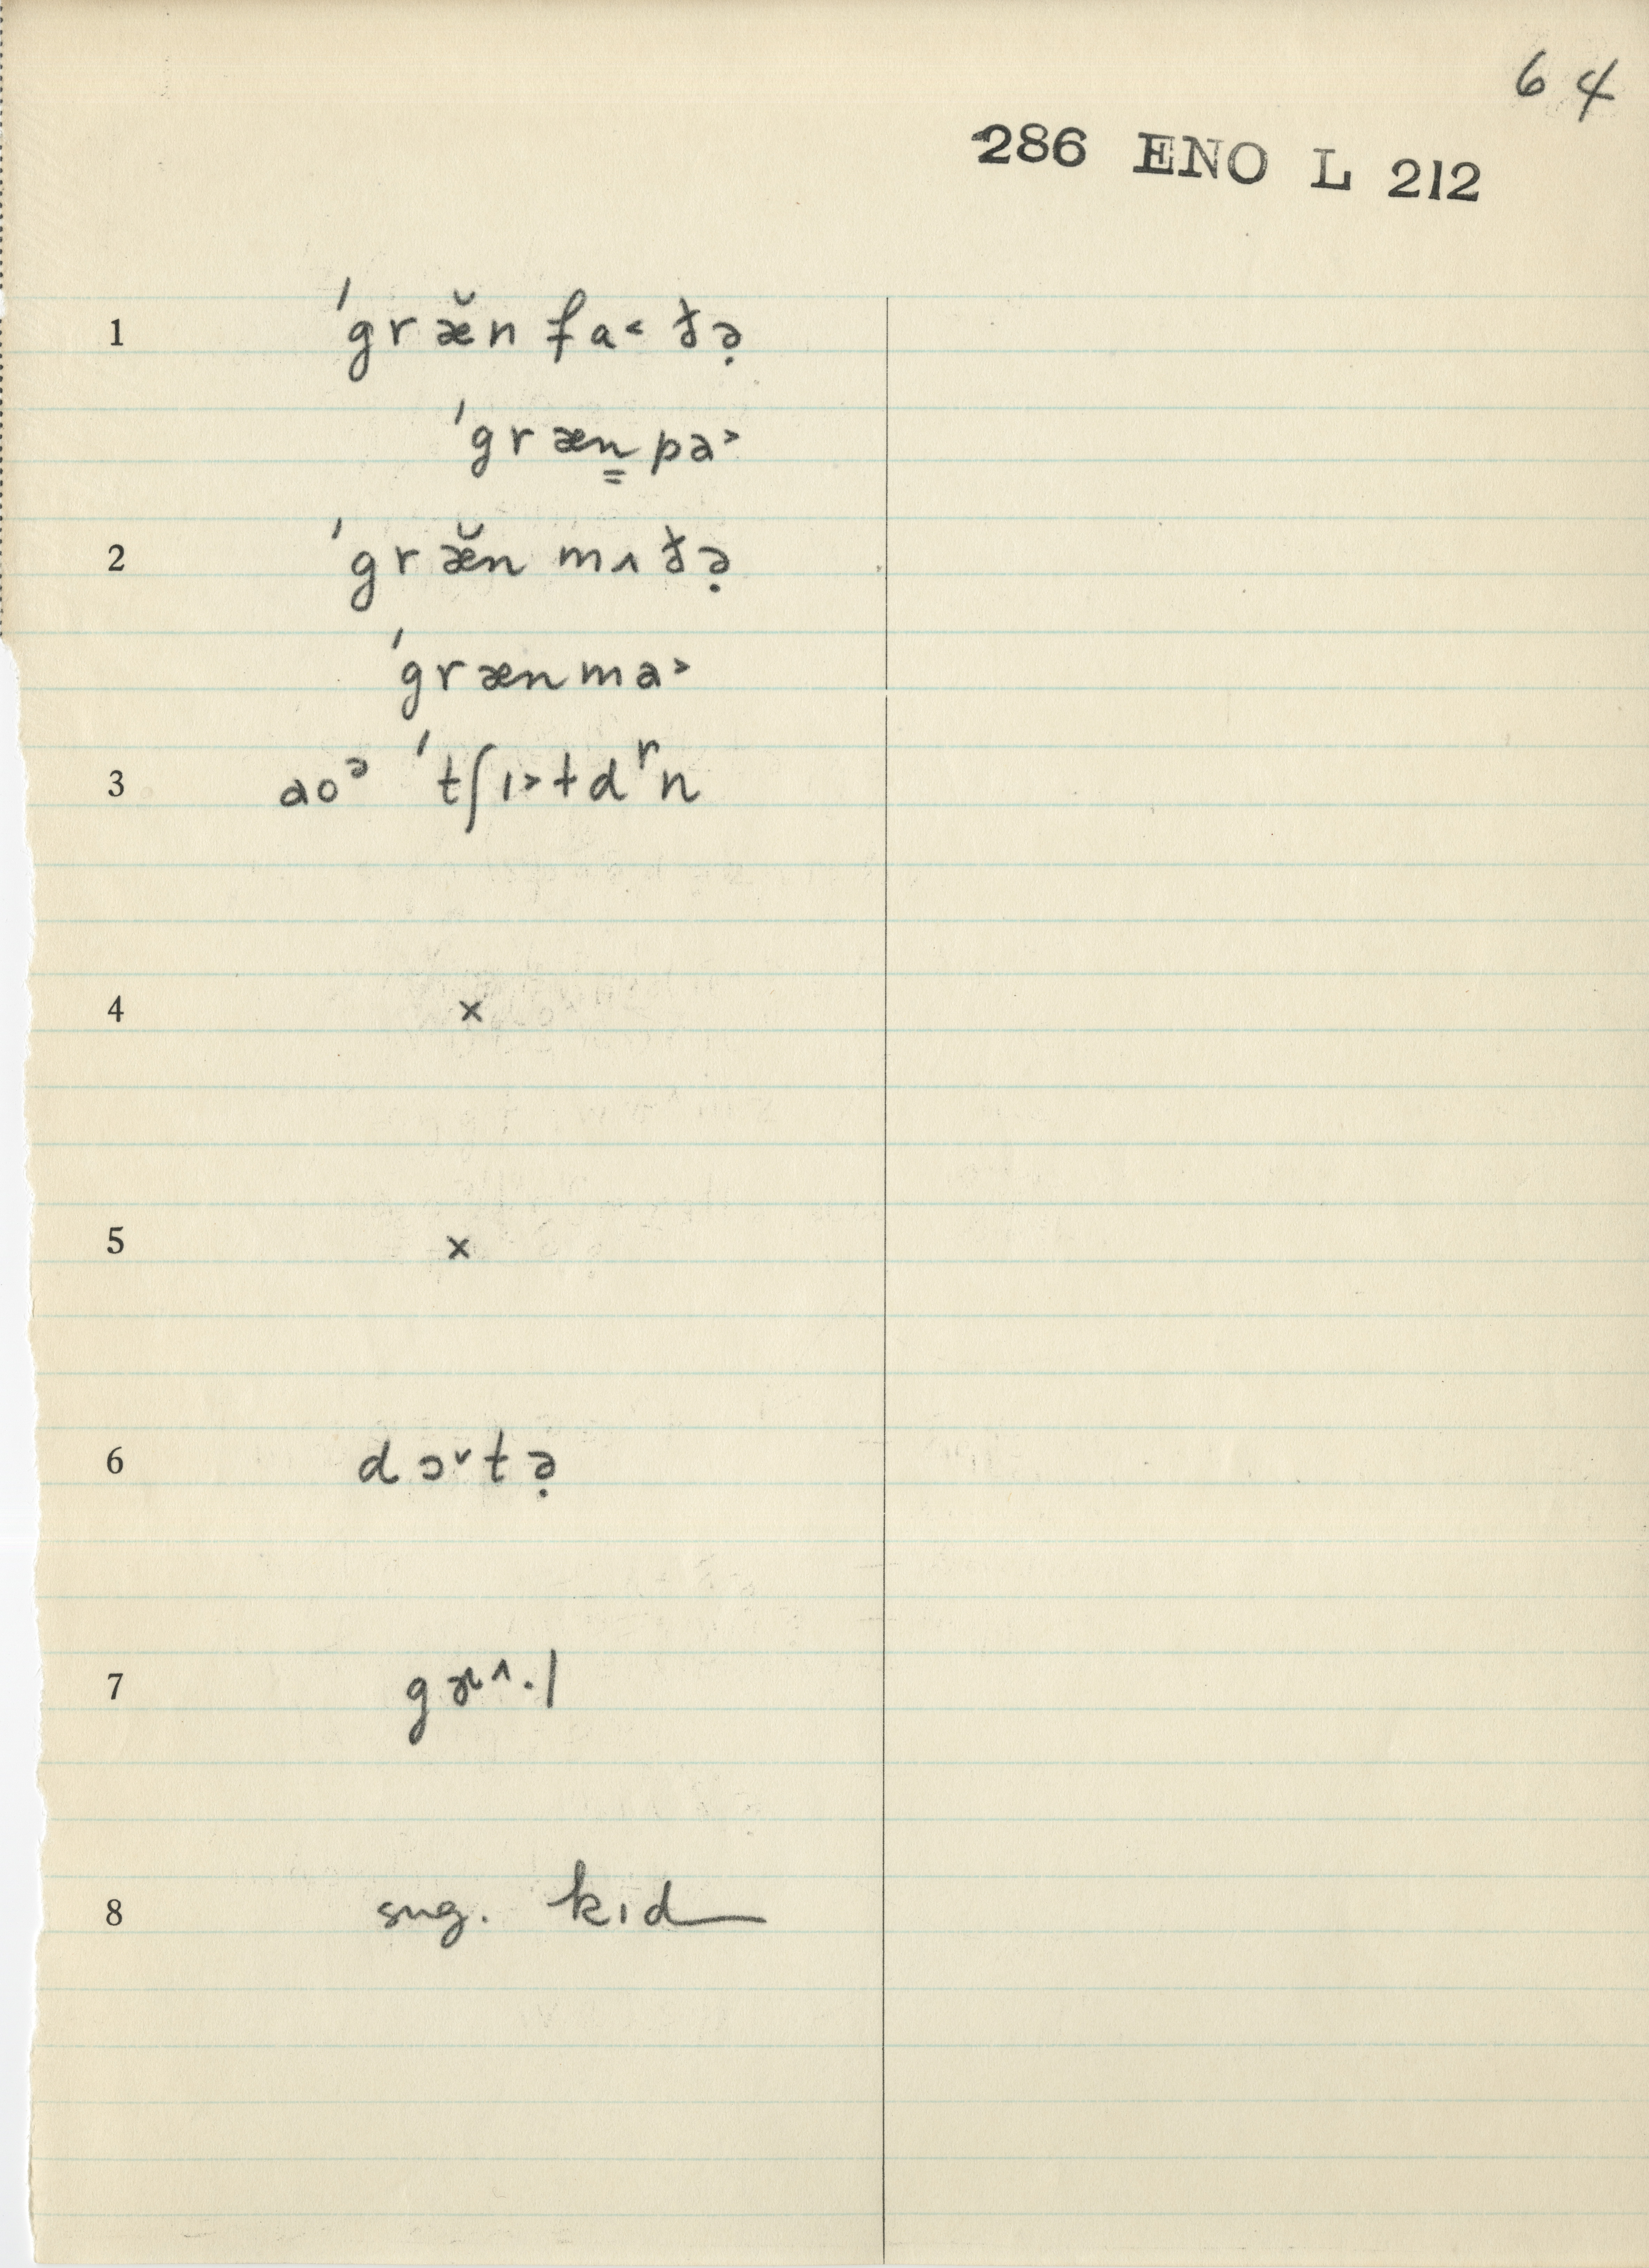 64
286 ENO L 212
1 ˈgræ̆n fa˂ ðə̣
ˈgræn̳ pa˃
2 ˈgræ̆n mʌ ðə̣
ˈgræn ma˃
3 aoᵊ ˈtʃɪ˃ldʳn
4 ×
5 ×
6 dɔ˅tə̣
7 gɜ˄·l
8 sug. kɪd